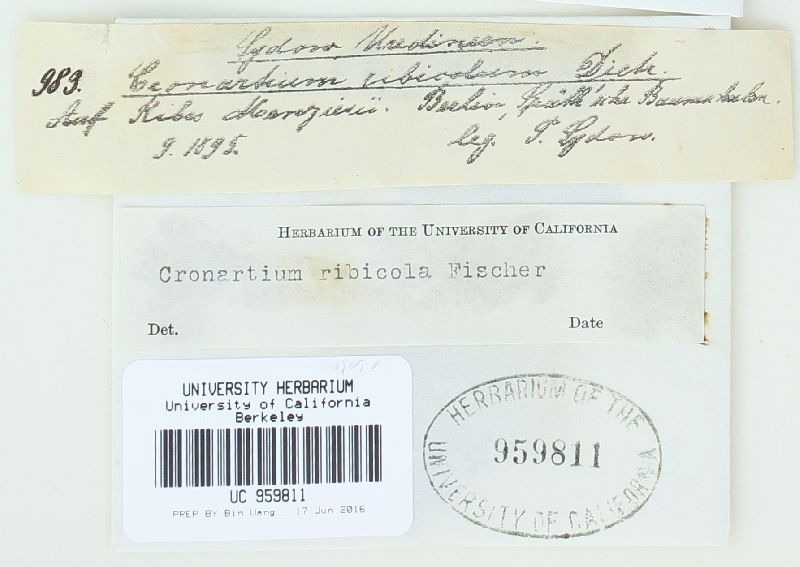 Sydow Uredineen.
983. Cronartium ribicolum Dietr.
Auf Ribes Menziesii. Berlin, Späth'sche Baumschulen.
9. 1895. leg. P. Sydow.
HERBARIUM OF THE UNIVERSITY OF CALIFORNIA
Cronartium ribicola Fischer
Det. Date
UNIVERSITY HERBARIUM
University of California
Berkeley
UC 959811
PREP BY Bin Wang , 17 Jun 2016
HERBARIUM OF THE
959811
UNIVERSITY OF CALIFORNIA